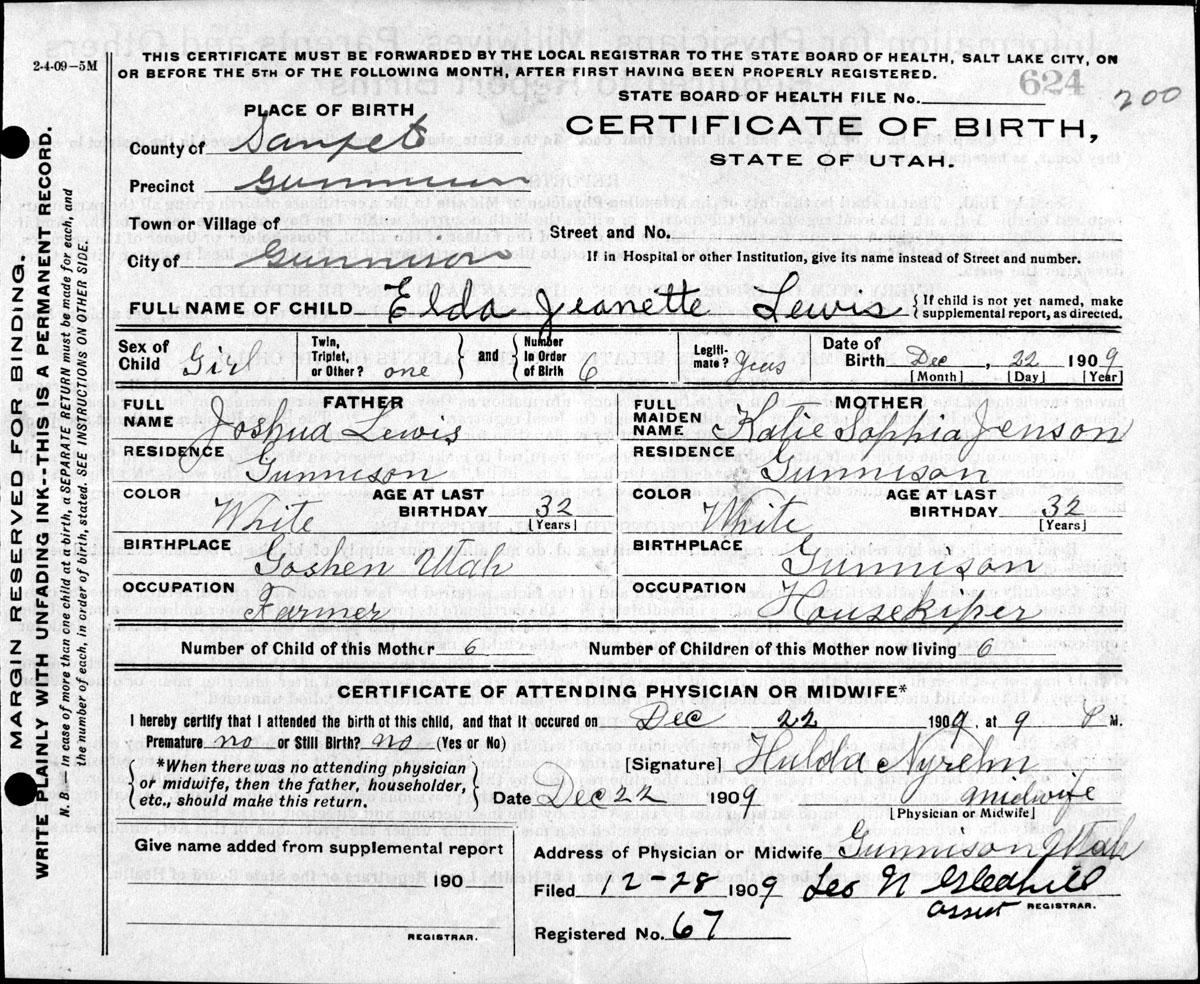 2-4-09-5M
THIS CERTIFICATE MUST BE FORWARDED BY THE LOCAL REGISTRAR TO THE STATE BOARD OF HEALTH, SALT LAKE CITY, ON
OR BEFORE THE 5TH OF THE FOLLOWING MONTH, AFTER FIRST HAVING BEEN PROPERLY REGISTERED.
624
200
STATE BOARD OF HEALTH FILE No.
CERTIFICATE OF BIRTH,
STATE OF UTAH.
PLACE OF BIRTH
County of Sanpete
Precinct Gunnison
Town or Village of
Street and No.
City of Gunnison
If in Hospital or other Institution, give its name instead of Street and number.
FULL NAME OF CHILD Elda Jeanette Lewis { If child is not yet named, make supplemental report, as directed.
Sex of Child Girl Twin, Triplet, or Other? one } and { Number in Order of Birth 6 Legiti-mate? Yes Date of Birth Dec, 22 1909
[Month] [Day] [Year]
FATHER
FULL NAME Joshua Lewis
RESIDENCE Gunnison
COLOR White AGE AT LAST BIRTHDAY 32
[Years]
BIRTHPLACE Goshen Utah
OCCUPATION Farmer
MOTHER
FULL MAIDEN NAME Katie Sophia Jenson
RESIDENCE Gunnison
COLOR White AGE AT LAST BIRTHDAY 32
[Years]
BIRTHPLACE Gunnison
OCCUPATION Housekiper
Number of Child of this Mother 6 Number of Children of this Mother now living 6
CERTIFICATE OF ATTENDING PHYSICIAN OR MIDWIFE*
I hereby certify that I attended the birth of this child, and that it occured on Dec 22 1909, at 9 P M.
Premature no or Still Birth? no (Yes or No)
{ *When there was no attending physician
or midwife, then the father, householder,
etc., should make this return. }
[Signature] Hulda
Date Dec 22 1909 midwife
[Physician or Midwife]
Give name added from supplemental report
190
REGISTRAR.
Address of Physician or Midwife Gunnison Utah
Filed 12-28 1909 Leo N Gledhill
Assist REGISTRAR.
Registered No. 67
MARGIN RESERVED FOR BINDING.
WRITE PLAINLY WITH UNFADING INK--THIS IS A PERMANENT RECORD.
N. B.—In case of more than one child at a birth, a SEPARATE RETURN must be made for each, and
the number of each, in order of birth, stated. SEE INSTRUCTIONS ON OTHER SIDE.